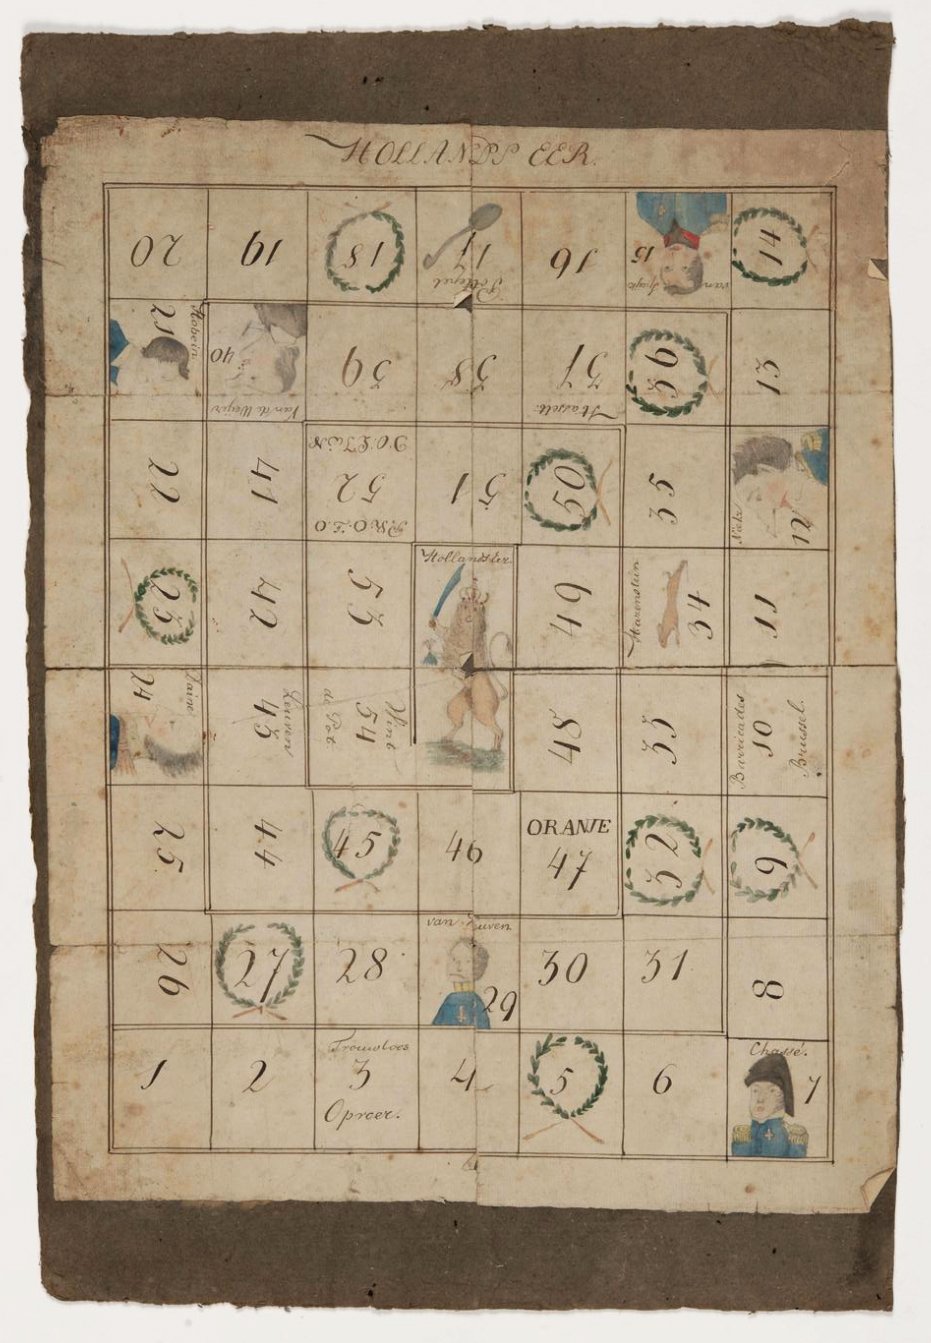 HOLLANDS EER.
20
19
18
17
Pollepel
16
15
van Speyk
14
21
40
Van de Weyer
39
38
37
Hasselt
36
13
22
41
52
51
50
35
12
23
42
53
Hollands Eer.
49
34
11
24
Leuven
43
Wint
54
de Pot
48
33
Barricades
10
Brussel.
25
44
45
46
ORANJE
47
32
9
26
27
28
van
29
30
31
8
1
2
Trouwloos
3
Oproer.
4
5
6
Chassé.
7